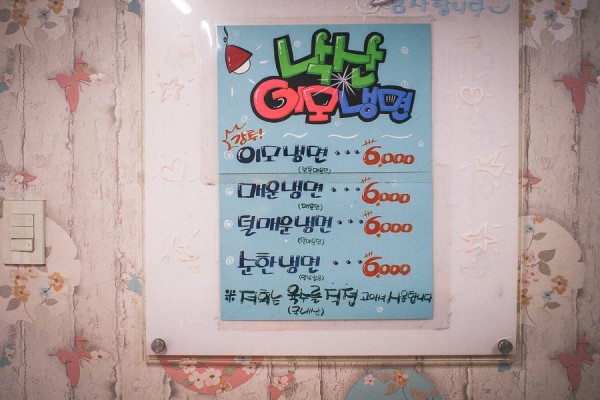 감사합니다~
낙산
이모냉면
강추!
이모냉면 ··· ₩6,000
(보통매운맛)
매운냉면 ··· ₩6,000
(매운맛)
덜매운냉면 ·· ₩6,000
(덜매운맛)
순한냉면 ··· ₩6,000
※ 저희는 육수를 직접 고아서 사용합니다
(국내산)